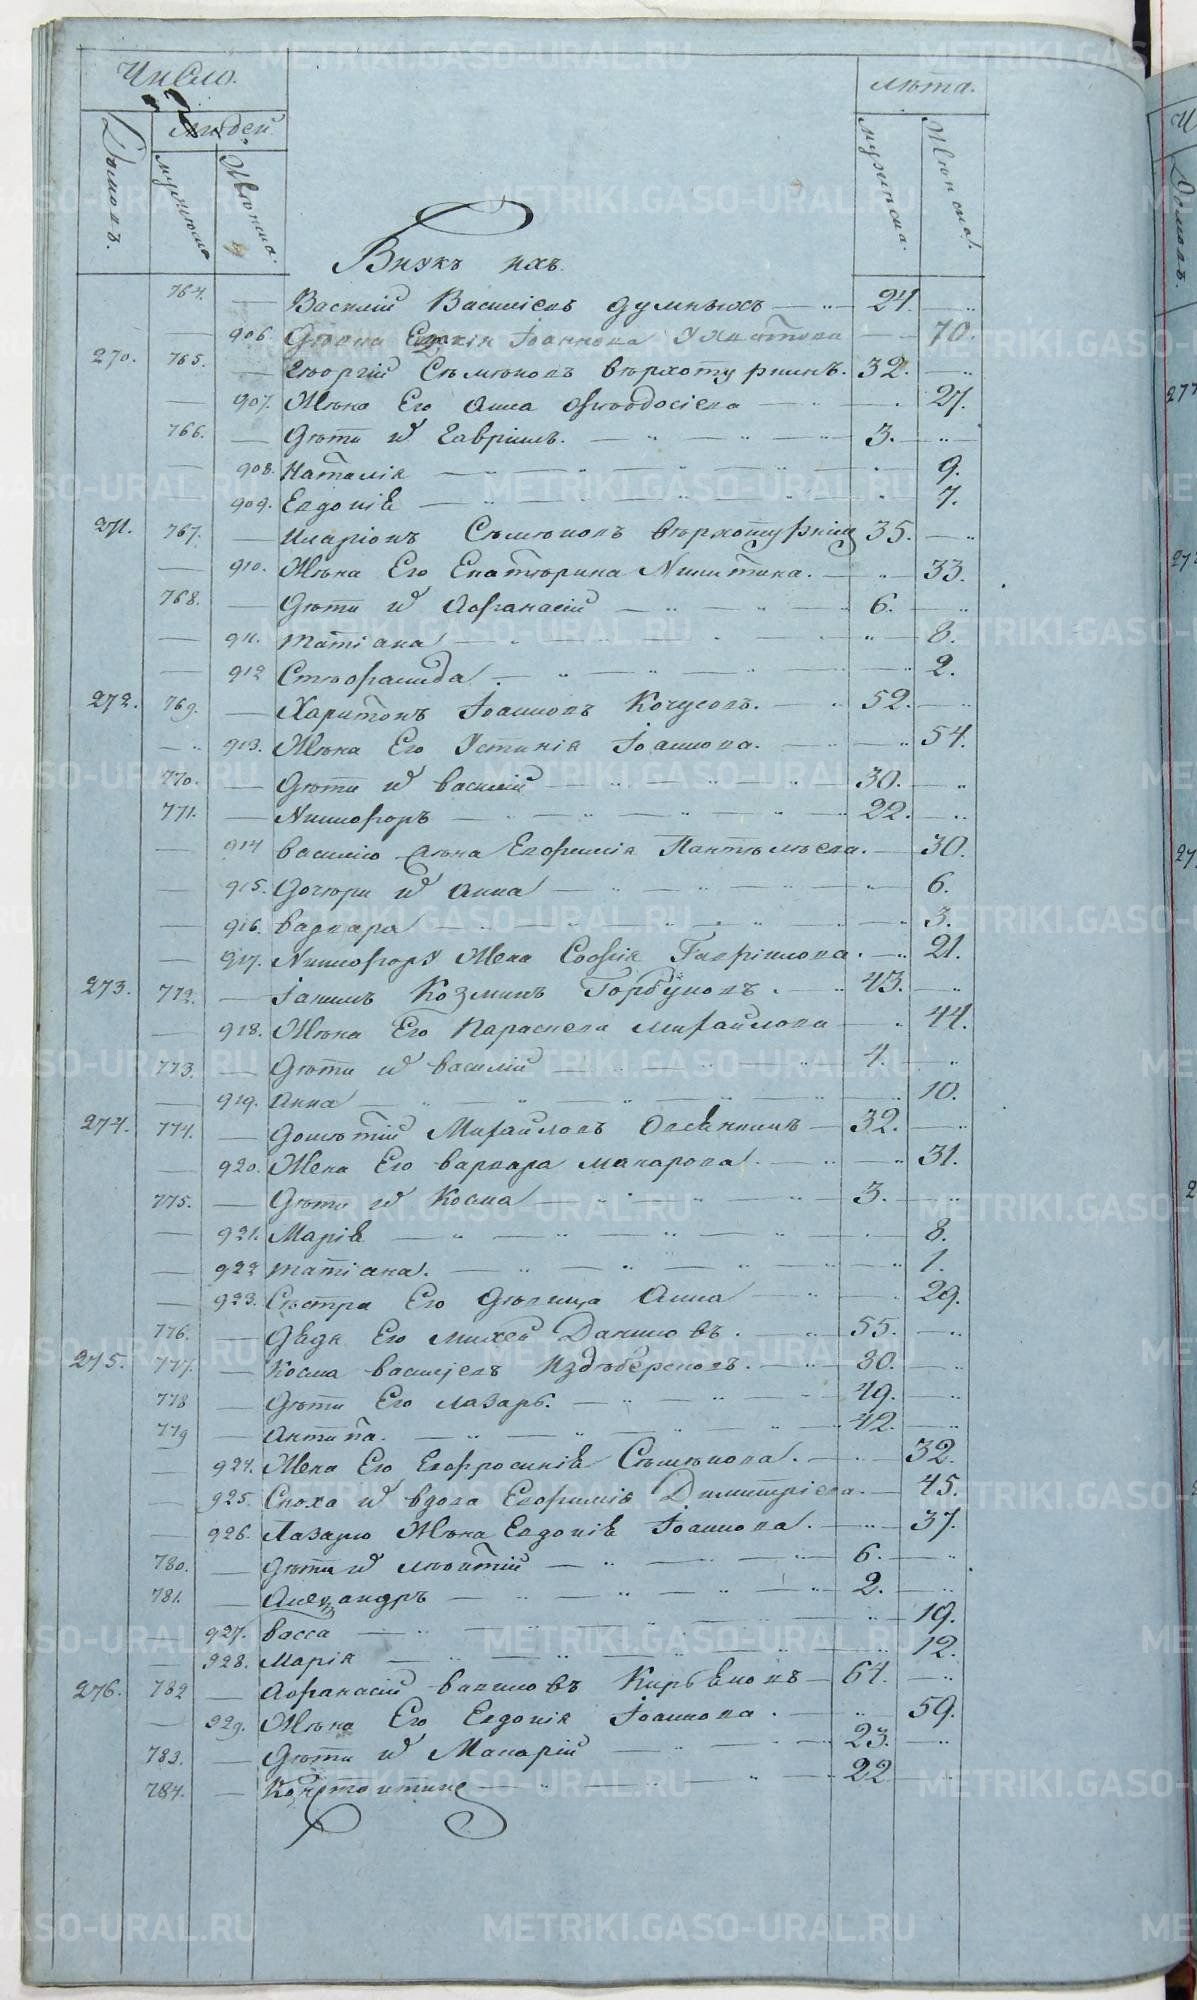 Число. Лѣта.
Домовъ. Людей Мужеска. Женска.
Мужеска Женска.
Внукъ ихъ.
764. Василій Василіевъ Думныхъ 24.
906. Іоаннова 70.
270. 765. Георгій Семеновъ Верхотуркинъ. 32.
907. Жена Его Анна Феодосіева 27.
766. Дети ихъ Гавріилъ. 3.
908. Наталія 9.
909. Евдокія 7.
271. 767. Иларіонъ Семеновъ 35.
910. Жена Его Екатерина Никитина. 33.
768. Дети ихъ Афанасій 6.
911. Татіана 8.
912 Стефанида. 2.
272. 769. Харитонъ Іоанновъ Кочусовъ. 52.
913. Жена Его Устинія Іоаннова. 54.
770. Дети ихъ Василій 30.
771. Никифоръ 22.
914 Василію жена Евфимія Пантелеева. 30.
915. Дочери ихъ Анна 6.
916. Варвара 3.
917. Никифору Жена Софія Гавріилова. 21.
273. 772. Іакимъ Козминъ Горбуновъ. 43.
918. Жена Его Параскева Михайлова 44.
773. Дети ихъ Василій 4.
919. Анна 10.
274. 774. Дометій Михайловъ Овсянкинъ 32.
920. Жена Его Варвара Макарова. 31.
775. Дети ихъ Косма 3.
921. Марія 8.
922 Татіана. 1.
923. Сестра Его Девица Анна 29.
776. Дядя Его Михей Даниловъ. 55.
275. 777. Косма Василіевъ 30.
778 Дети Его Лазарь. 49.
779 Антипа. 42.
924. Жена Его Евфросинія Семенова. 32.
925. Сноха ихъ вдова Евфимія Димитріева. 45.
926. Лазарю Жена Евдокія Іоаннова. 37.
780. Дети ихъ Леонтій 6.
781. Александръ 2.
927. Васса 19.
928. Марія 12.
276. 782 Афанасій Вавиловъ 64.
929. Жена Его Евдокія Іоаннова. 59.
783. Дети ихъ Макарій 23.
784. Константинъ 22
METRIKI.GASO-URAL.RU